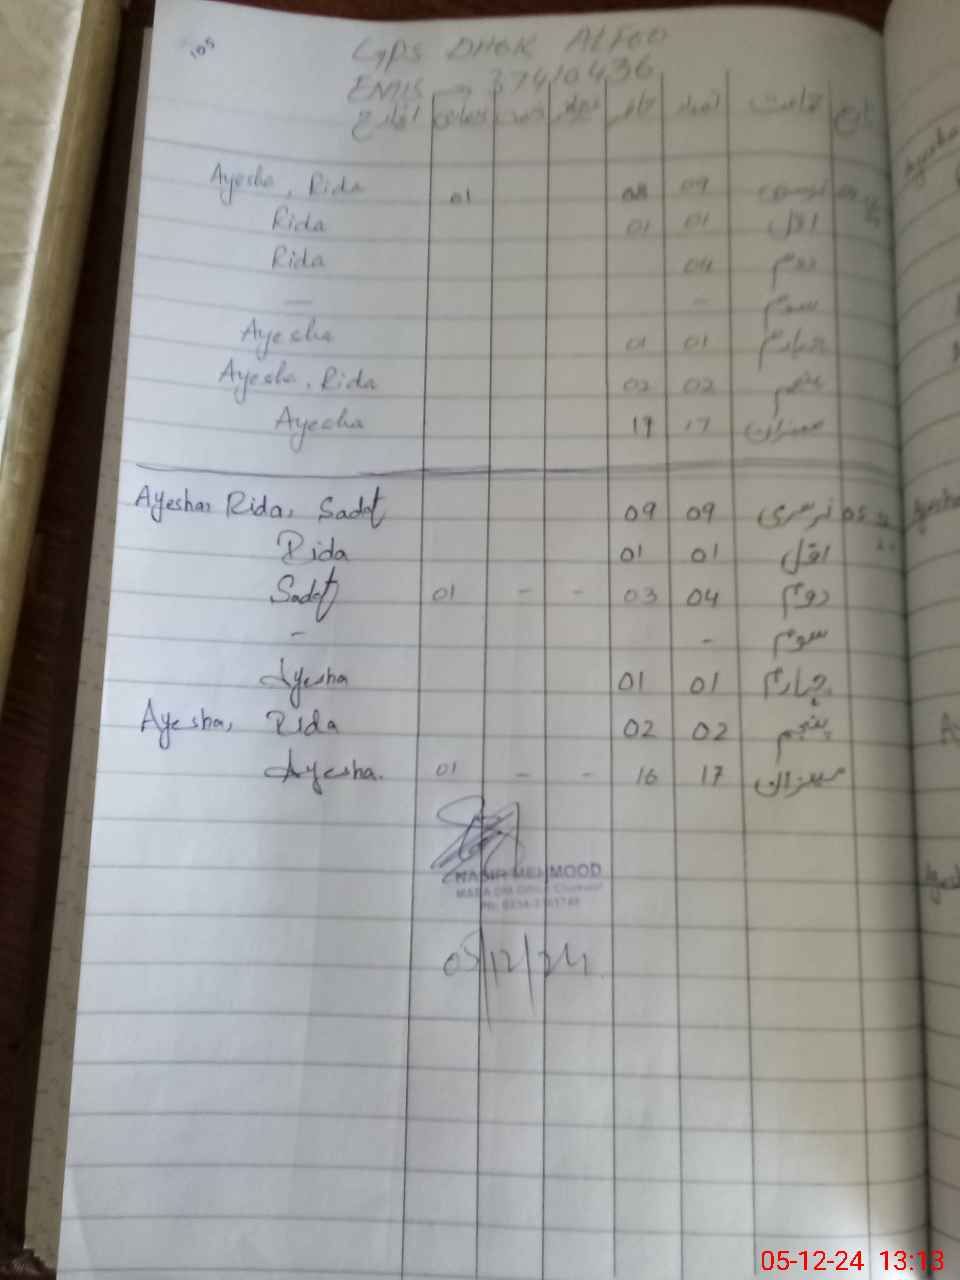 105
GPS DHOK ALFOO
EMIS → 37410436
انچارج حاضر تعداد جماعت تاریخ
Ayesha, Rida 01 09 نرسری
Rida 01 01 اول
Rida 04 دوم
— - سوم
Ayesha 01 01 چہارم
Ayesha, Rida 02 02 پنجم
Ayesha 17 میزان
Ayesha, Rida, Sadaf 09 09 نرسری 05
Rida 01 01 اول
Sadaf 01 - - 03 04 دوم
- - سوم
Ayesha 01 01 چہارم
Ayesha, Rida 02 02 پنجم
Ayesha. 01 - - 16 17 میزان
NASIR MEHMOOD
05/12/24
05-12-24 13:13